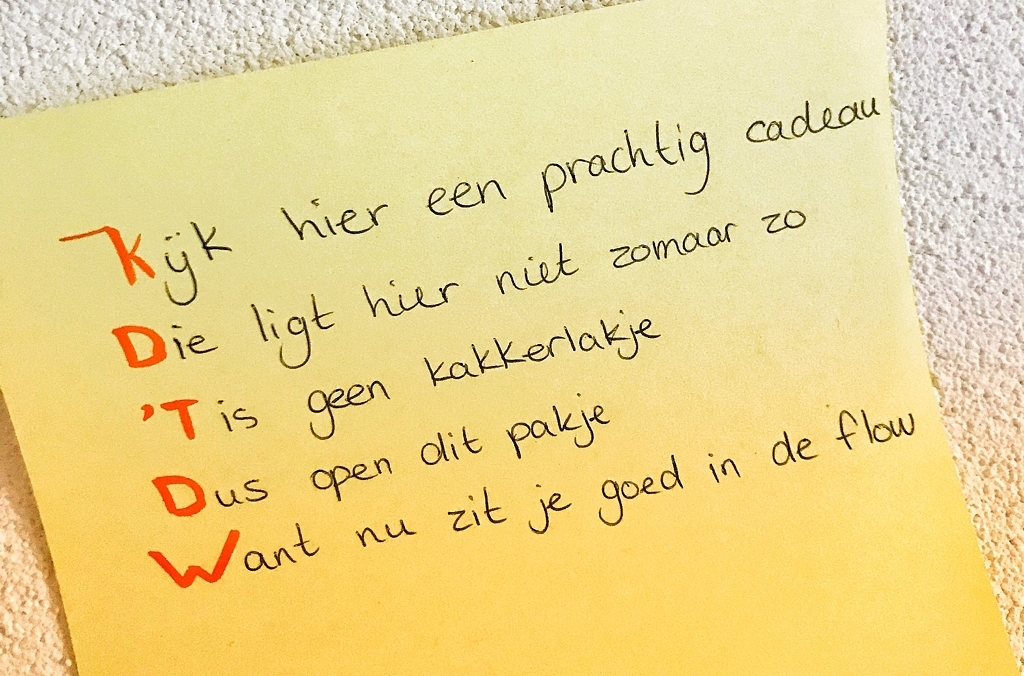 Kijk hier een prachtig cadeau
Die ligt hier niet zomaar zo
'T is geen kakkerlakje
Dus open dit pakje
Want nu zit je goed in de flow